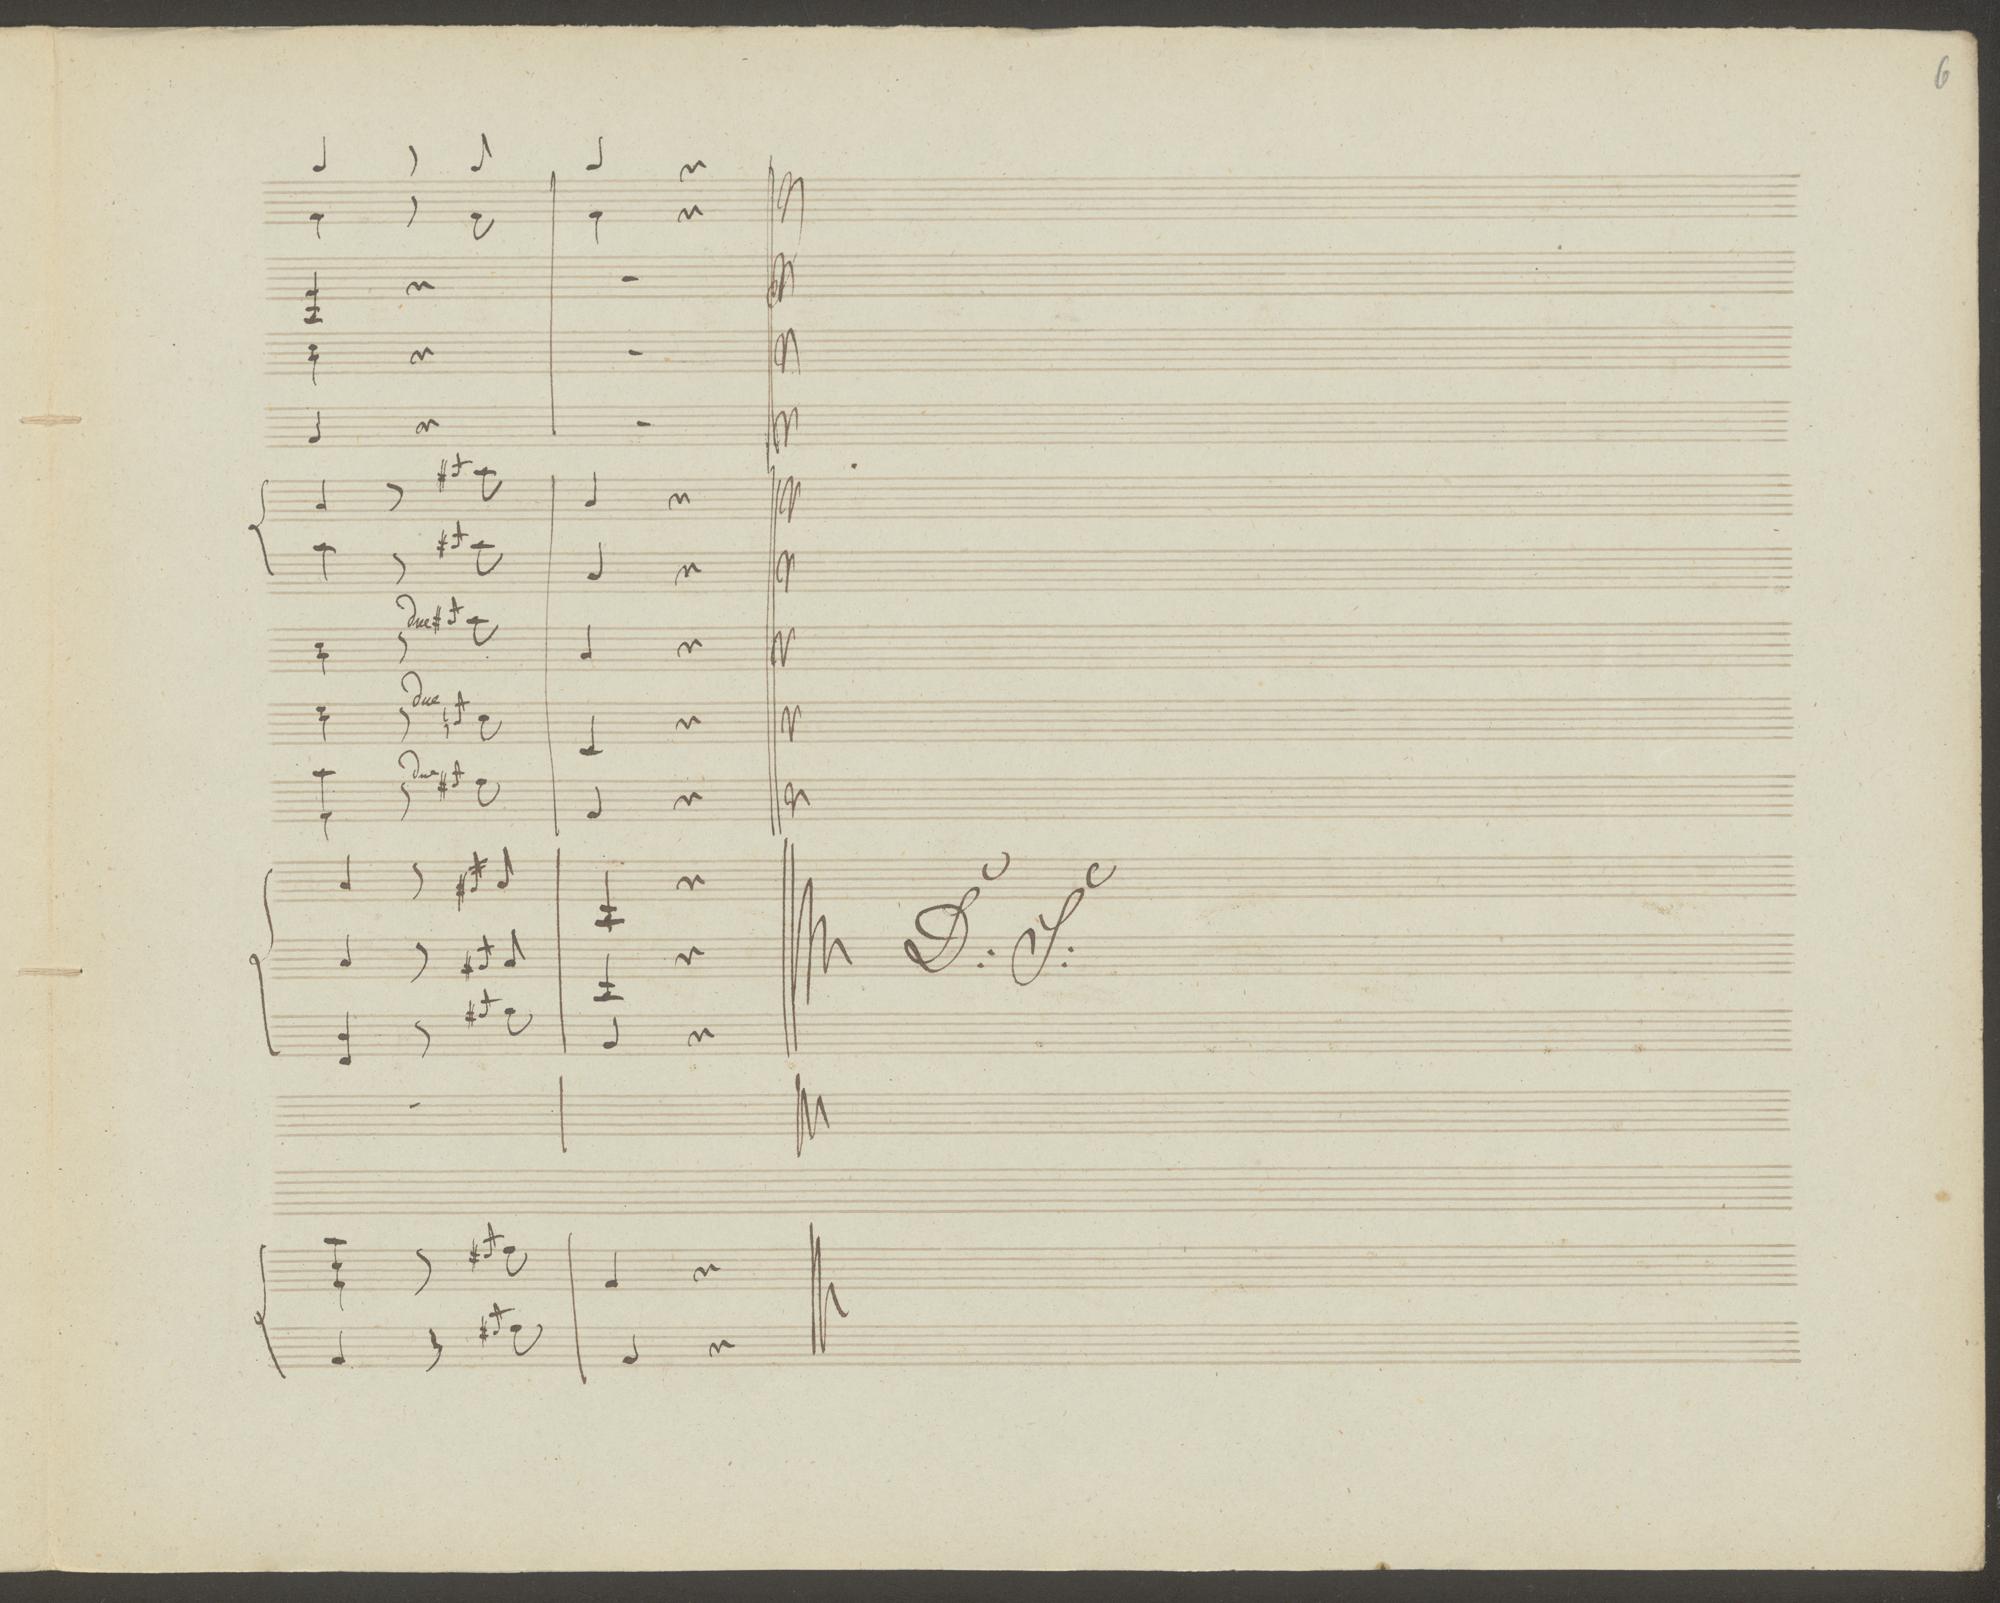 6
due
due
due
D.c S.c